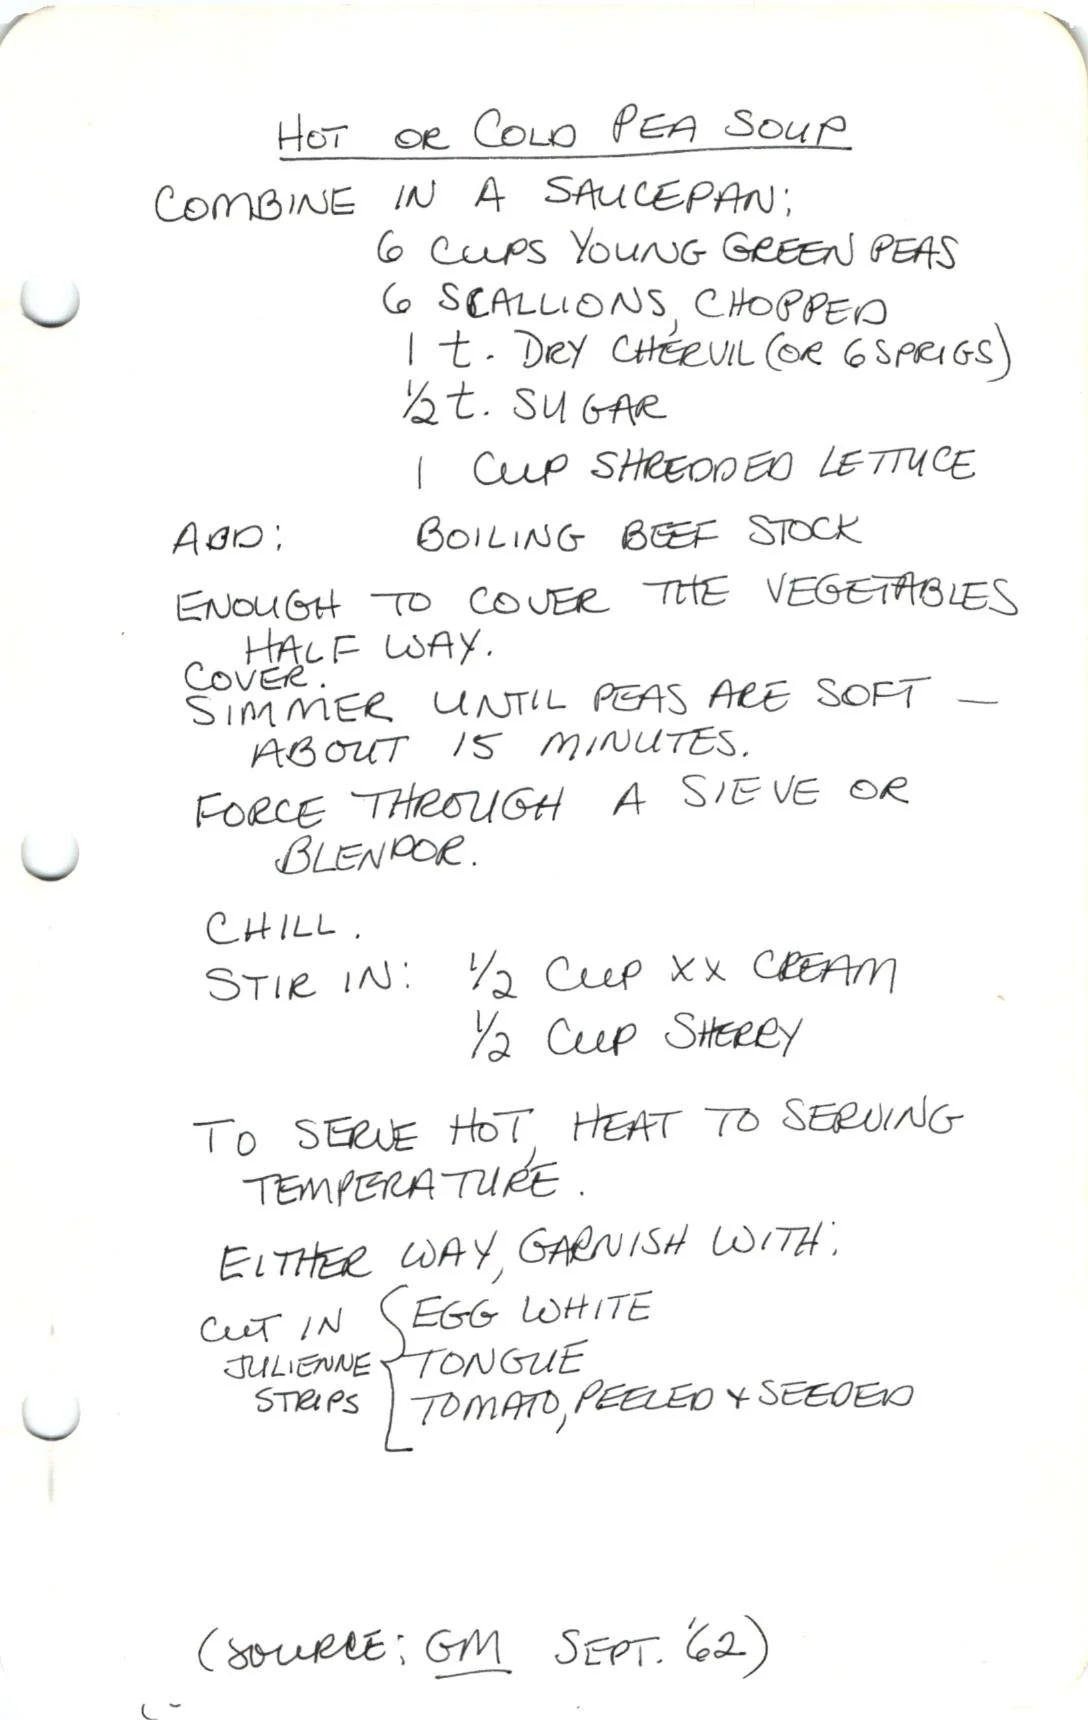 HOT OR COLD PEA SOUP
COMBINE IN A SAUCEPAN:
6 CUPS YOUNG GREEN PEAS
6 SCALLIONS, CHOPPED
1 t. DRY CHERVIL (OR 6 SPRIGS)
1/2 t. SUGAR
1 CUP SHREDDED LETTUCE
ADD: BOILING BEEF STOCK
ENOUGH TO COVER THE VEGETABLES
HALF WAY.
COVER.
SIMMER UNTIL PEAS ARE SOFT —
ABOUT 15 MINUTES.
FORCE THROUGH A SIEVE OR
BLENDOR.
CHILL.
STIR IN: 1/2 CUP XX CREAM
1/2 CUP SHERRY
TO SERVE HOT, HEAT TO SERVING
TEMPERATURE.
EITHER WAY, GARNISH WITH:
CUT IN { EGG WHITE
JULIENNE TONGUE
STRIPS TOMATO, PEELED & SEEDED
(SOURCE: GM SEPT. '62)